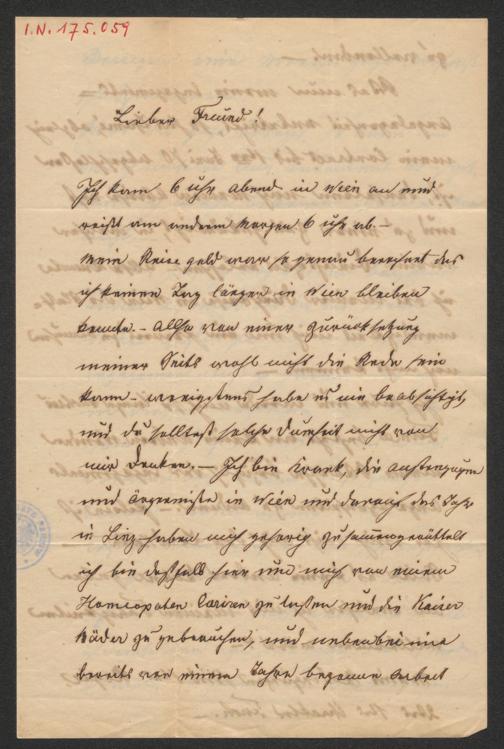 I.N. 175.059
Lieber Freund!
Ich kam 6 uhr abend in Wien an und
reißt am andern Morgen 6 uhr ab.–
Mein Reise geld war so genau berechnet das
ich keinen Tag länger in Wien bleiben
konnte.– Allso von einer zurücksetzung
meiner Seits wohl nicht die Rede sein
kann – wenigstens habe es nie beabsichtigt,
und du solltest solche Dumheit nicht von
mir Denken.– Ich bin Krank, die anstrengungen
und ärgernisse in Wien und darauf das Jahr
in Linz haben mich gehörig zusammengerüttelt
ich bin deßhalb hier um mich von einem
Homeopaten Curiren zu laßen und die Kaiser
Bäder zu gebrauchen, und nebenbei eine
bereits vor einem Jahre begonne Arbeit